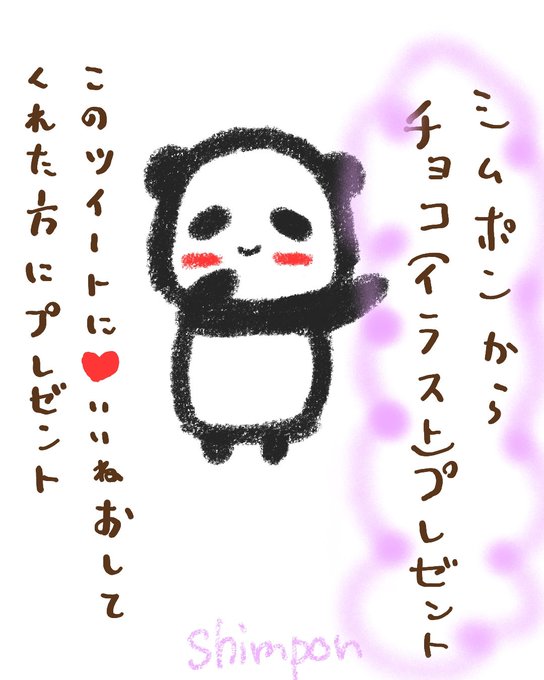 シムポンから
チョコ(イラスト)プレゼント
このツイートに❤いいねおして
くれた方にプレゼント
Shimpon